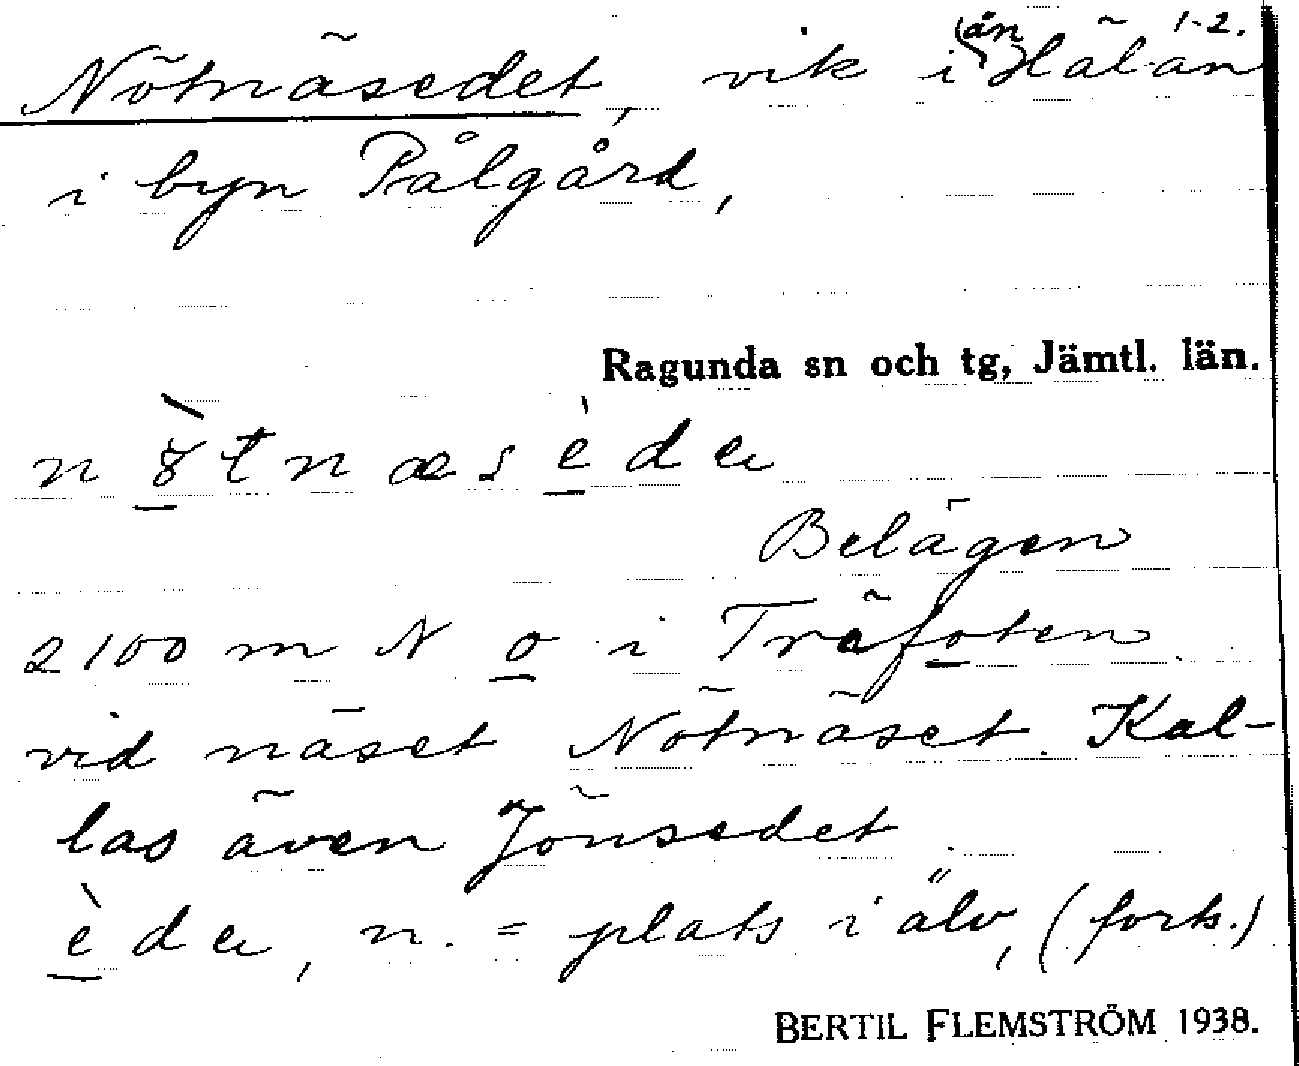 1-2.
Nötnäsedet, vik i (än Hälån
i byn Pålgård,
Ragunda sn och tg, Jämtl. län.
Belägen
2100 m N o i Träfoten
vid näset Nötnäset. Kal-
las även Jönsedet.
n. = plats i älv, (forts.)
BERTIL FLEMSTRÖM 1938.